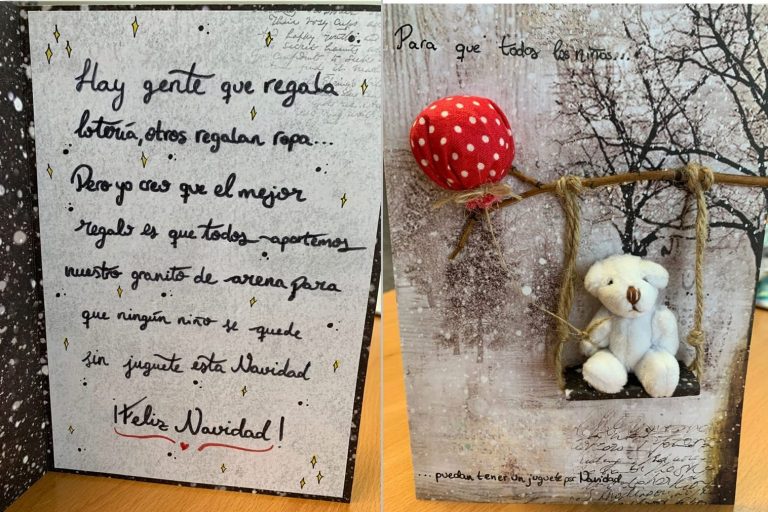 Hay gente que regala
lotería, otros regalan ropa...
Pero yo creo que el mejor
regalo es que todos aportemos
nuestro granito de arena para
que ningún niño se quede
sin juguete esta Navidad
¡Feliz Navidad!
Para que todos los niños...
...puedan tener un juguete por Navidad